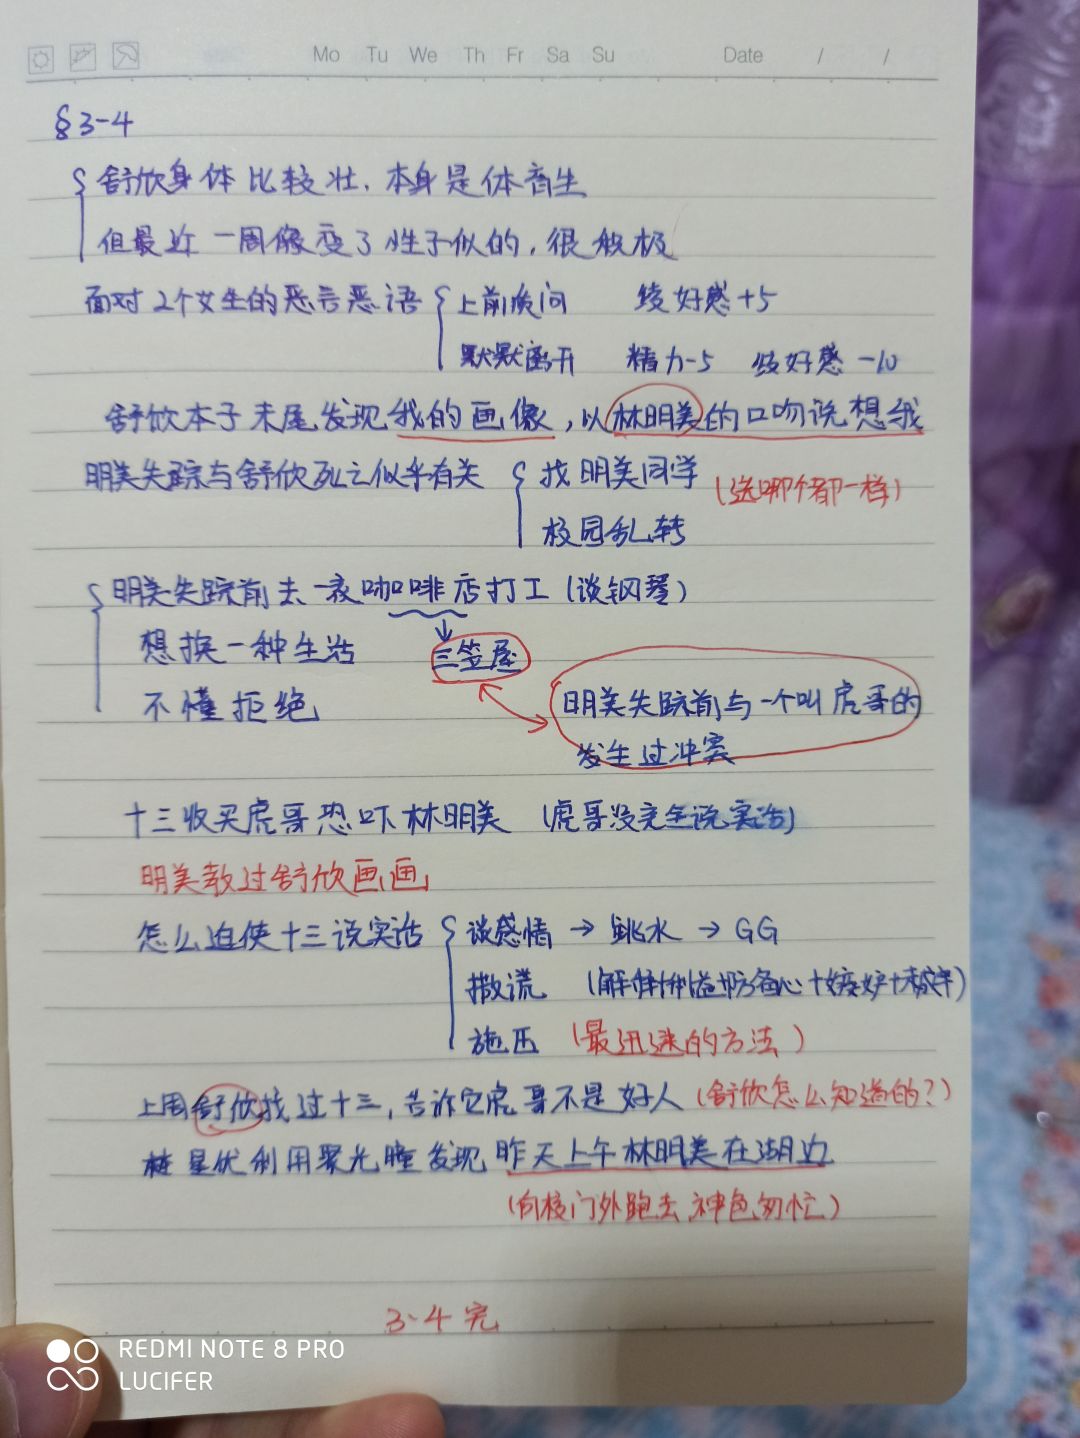 Mo Tu We Th Fr Sa Su Date / /
§3-4
舒欣身体比较壮，本身是体育生
但最近一周像变了性子似的，很积极
面对2个女生的恶言恶语 上前质问 绫好感+5
默默离开 精力-5 绫好感-10
舒欣本子末尾发现我的画像，以林明美的口吻说想我
明美失踪与舒欣死之似乎有关 找明美同学 (选哪个都一样)
校园乱转
明美失踪前去一夜咖啡店打工(谈钢琴)
想换一种生活 三笠屋
不懂拒绝 明美失踪前与一个叫虎哥的
发生过冲突
十三收买虎哥恐吓林明美 (虎哥没完全说实话)
明美教过舒欣画画
怎么迫使十三说实话 谈感情→跳水→GG
撒谎
施压 (最迅速的方法)
上周舒欣找过十三，告诉它虎哥不是好人(舒欣怎么知道的?)
星伏利用聚光瞳发现昨天上午林明美在湖边
(向校门外跑去 神色匆忙)
3-4完
REDMI NOTE 8 PRO
LUCIFER